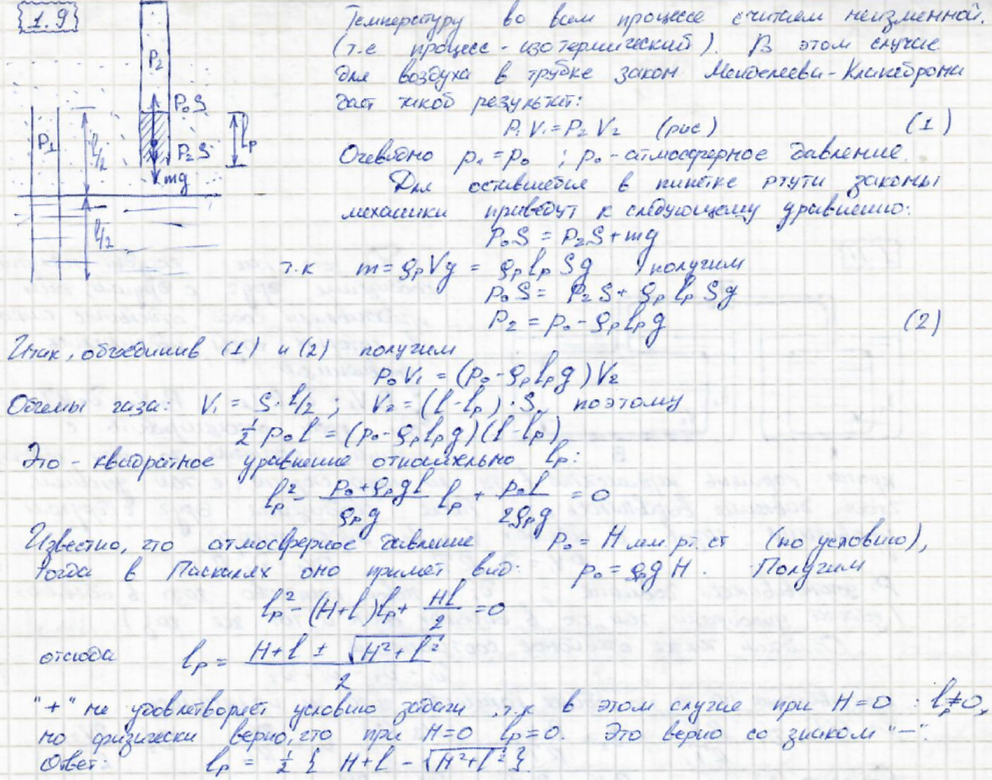 1.9
Температуру во всем процессе считаем неизменной.
(т.е процесс - изотермический). В этом случае
для воздуха в трубке закон Менделеева-Клапейрона
даст такой результат:
P₁V₁=P₂V₂ (рис) (1)
Очевидно p₁=p₀ ; p₀-атмосферное давление.
Для оставшейся в пипетке ртути законы
механики приведут к следующему уравнению:
P₀S = P₂S+mg
т.к m=ρₚVg = ρₚlₚSg, получим
P₀S = P₂S+ρₚlₚSg
P₂ = p₀-ρₚlₚg (2)
Итак, объединив (1) и (2) получим
p₀V₁ = (p₀-ρₚlₚg)V₂
Объемы газа: V₁ = S·l/2 ; V₂=(l-lₚ)·S, поэтому
½p₀l = (p₀-ρₚlₚg)(l-lₚ)
Это - квадратное уравнение относительно lₚ:
lₚ² - (p₀+ρₚgl)/(ρₚg) lₚ + p₀l/(2ρₚg) = 0
Известно, что атмосферное давление p₀=H мм рт.ст (по условию),
тогда в Паскалях оно примет вид: p₀=ρₚgH. Получим
lₚ²-(H+l)lₚ+Hl/2=0
отсюда lₚ = (H+l ± √(H²+l²))/2
"+" не удовлетворяет условию задачи, т.к в этом случае при H=0 : lₚ≠0,
но физически верно, что при H=0 lₚ=0. Это верно со знаком "-".
Ответ: lₚ = ½{ H+l - √(H²+l²) }.
P₂
P₀S
P₁
l/2
P₂S
lₚ
mg
l/2